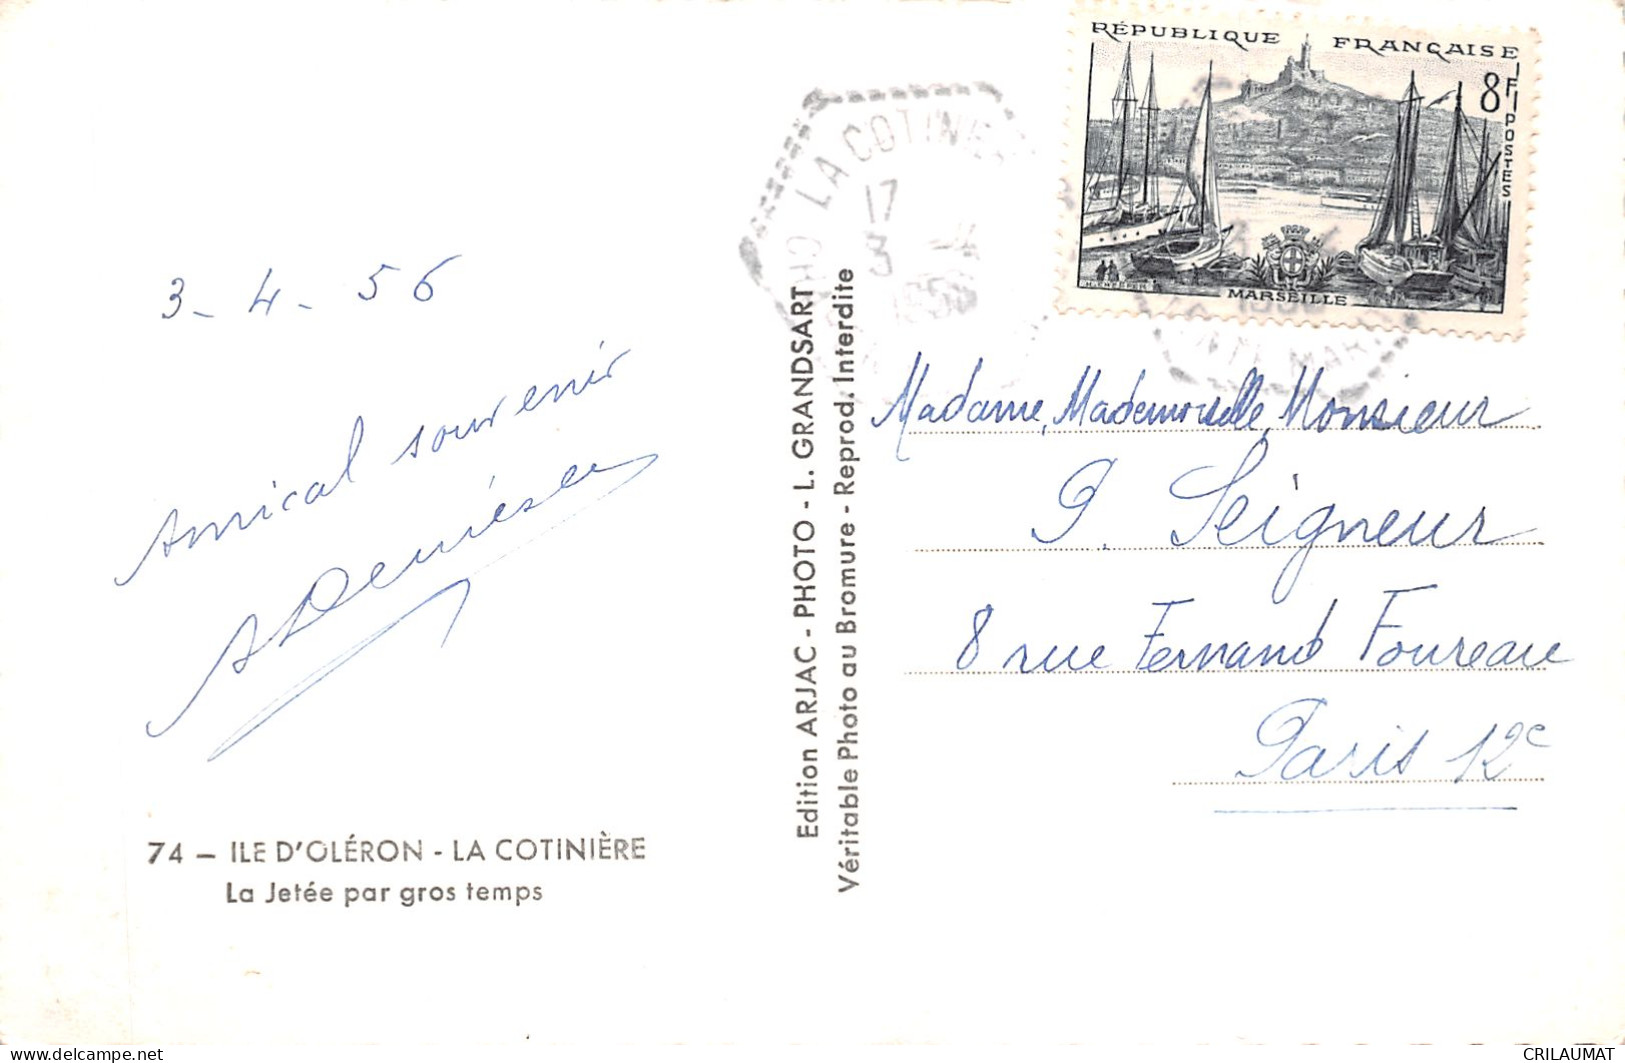 RÉPUBLIQUE FRANÇAISE
8F
POSTES
MARSEILLE
LA COTINI
17
3 -4
1956
3-4-56
Amical souvenir
Madame, Mademoiselle, Monsieur
P. Seigneur
8 rue Fernand Foureau
Paris 12e
Edition ARJAC - PHOTO - L. GRANDSART
Véritable Photo au Bromure - Reprod. Interdite
74 – ILE D'OLÉRON - LA COTINIÈRE
La Jetée par gros temps
CRILAUMAT